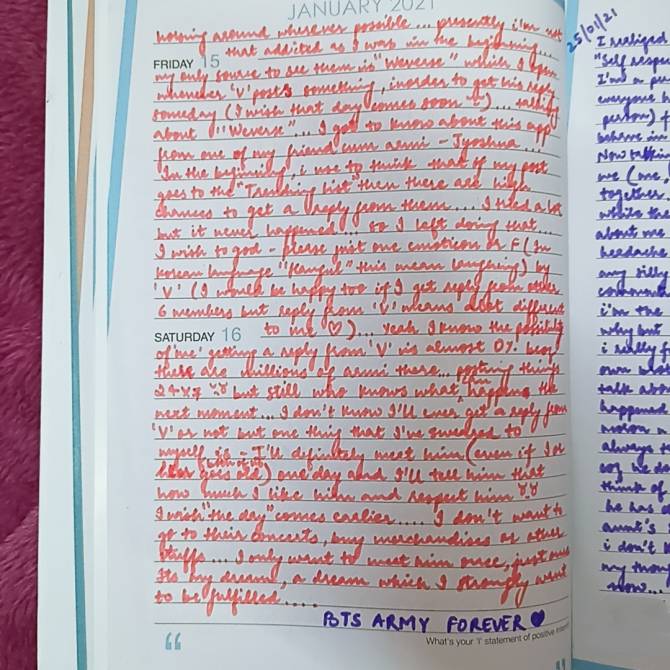 JANUARY 2021
roaming around wherever possible... presently i'm not
that addicted as I was in the beginning...
FRIDAY 15
my only source to see them is "Weverse" which I open
whenever 'V' posts something, inorder to get his reply
someday (I wish that day comes soon)... talking
about "Weverse"... I got to know about this app
from one of my friend cum armi - Jyoshna...
In the beginning, i use to think that if my post
goes to the "Trending list" then there are high
chances to get a reply from them... I tried a lot
but it never happened... so I left doing that...
I wish to god - please just one emoticon or F (In
Korean language "Hangul" this mean laughing) by
'V' (I would be happy too if I get reply from other
6 members but reply from 'V' means alot different
SATURDAY 16
to me ♡)... Yeah I know the possibility
of 'me' getting a reply from 'V' is almost 0%. bcoz
there are millions of armi there... posting things
24x7 but still who knows what happens the
next moment... I don't know I'll ever get a reply from
'V' or not but one thing that I've sweared to
myself is - I'll definitely meet him (even if I or
goes old) one day and I'll tell him that
how much I like him and respect him
I wish "the day" comes earlier.... I don't want to
go to their concerts, buy merchandises or other
stuffs... I only want to meet him once, just once
Its my dream, a dream which I strongly want
to be fulfilled.....
BTS ARMY FOREVER ♥
What's your 'I' statement of positive
25/01/21
I realized
"Self respe
I'm a pe
everyone h
person) f
behave in
Now talkin
we (me,
together,
while the
about me
headache
any silly
comment
i'm the
why but
i really f
own best
talk abo
happened
always t
coz he do
think of
he has a
aunt's i
i don't l
my thou
now...